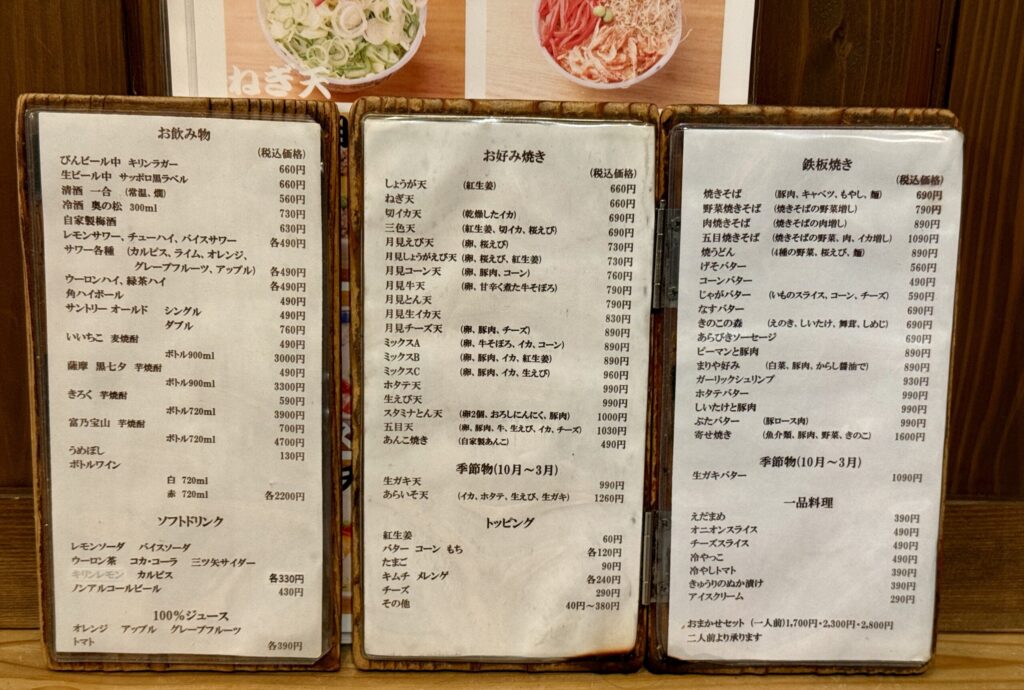 ねぎ天
お飲み物
(税込価格)
びんビール中 キリンラガー 660円
生ビール中 サッポロ黒ラベル 660円
清酒 一合 (常温、燗) 560円
冷酒 奥の松 300ml 730円
自家製梅酒 630円
レモンサワー、チューハイ、バイスサワー 各490円
サワー各種 (カルピス、ライム、オレンジ、
グレープフルーツ、アップル) 各490円
ウーロンハイ、緑茶ハイ 各490円
角ハイボール 490円
サントリー オールド シングル 490円
ダブル 760円
いいちこ 麦焼酎 490円
ボトル900ml 3000円
薩摩 黒七夕 芋焼酎 490円
ボトル900ml 3300円
きろく 芋焼酎 590円
ボトル720ml 3900円
富乃宝山 芋焼酎 700円
ボトル720ml 4700円
うめぼし 130円
ボトルワイン
白 720ml
赤 720ml 各2200円
ソフトドリンク
レモンソーダ バイスソーダ
ウーロン茶 コカ・コーラ 三ツ矢サイダー
キリンレモン カルピス 各330円
ノンアルコールビール 430円
100%ジュース
オレンジ アップル グレープフルーツ
トマト 各390円
お好み焼き
(税込価格)
しょうが天 (紅生姜) 660円
ねぎ天 660円
切イカ天 (乾燥したイカ) 690円
三色天 (紅生姜、切イカ、桜えび) 690円
月見えび天 (卵、桜えび) 730円
月見しょうがえび天 (卵、桜えび、紅生姜) 730円
月見コーン天 (卵、豚肉、コーン) 760円
月見牛天 (卵、甘辛く煮た牛そぼろ) 790円
月見とん天 790円
月見生イカ天 830円
月見チーズ天 (卵、豚肉、チーズ) 890円
ミックスA (卵、牛そぼろ、イカ、コーン) 890円
ミックスB (卵、豚肉、イカ、紅生姜) 890円
ミックスC (卵、豚肉、イカ、生えび) 960円
ホタテ天 990円
生えび天 990円
スタミナとん天 (卵2個、おろしにんにく、豚肉) 1000円
五目天 (卵、豚肉、牛、生えび、イカ、チーズ) 1030円
あんこ焼き (自家製あんこ) 490円
季節物(10月〜3月)
生ガキ天 990円
あらいそ天 (イカ、ホタテ、生えび、生ガキ) 1260円
トッピング
紅生姜 60円
バター コーン もち 各120円
たまご 90円
キムチ メレンゲ 各240円
チーズ 290円
その他 40円〜380円
鉄板焼き
(税込価格)
焼きそば (豚肉、キャベツ、もやし、麺) 690円
野菜焼きそば (焼きそばの野菜増し) 790円
肉焼きそば (焼きそばの肉増し) 890円
五目焼きそば (焼きそばの野菜、肉、イカ増し) 1090円
焼うどん (4種の野菜、桜えび、麺) 890円
げそバター 560円
コーンバター 490円
じゃがバター (いものスライス、コーン、チーズ) 590円
なすバター 690円
きのこの森 (えのき、しいたけ、舞茸、しめじ) 690円
あらびきソーセージ 890円
ピーマンと豚肉 890円
まりや好み (白菜、豚肉、からし醤油で) 890円
ガーリックシュリンプ 930円
ホタテバター 990円
しいたけと豚肉 990円
ぶたバター (豚ロース肉) 990円
寄せ焼き (魚介類、豚肉、野菜、きのこ) 1600円
季節物(10月〜3月)
生ガキバター 1090円
一品料理
えだまめ 390円
オニオンスライス 490円
チーズスライス 490円
冷やっこ 490円
冷やしトマト 390円
きゅうりのぬか漬け 390円
アイスクリーム 290円
おまかせセット (一人前)1,700円・2,300円・2,800円
二人前より承ります